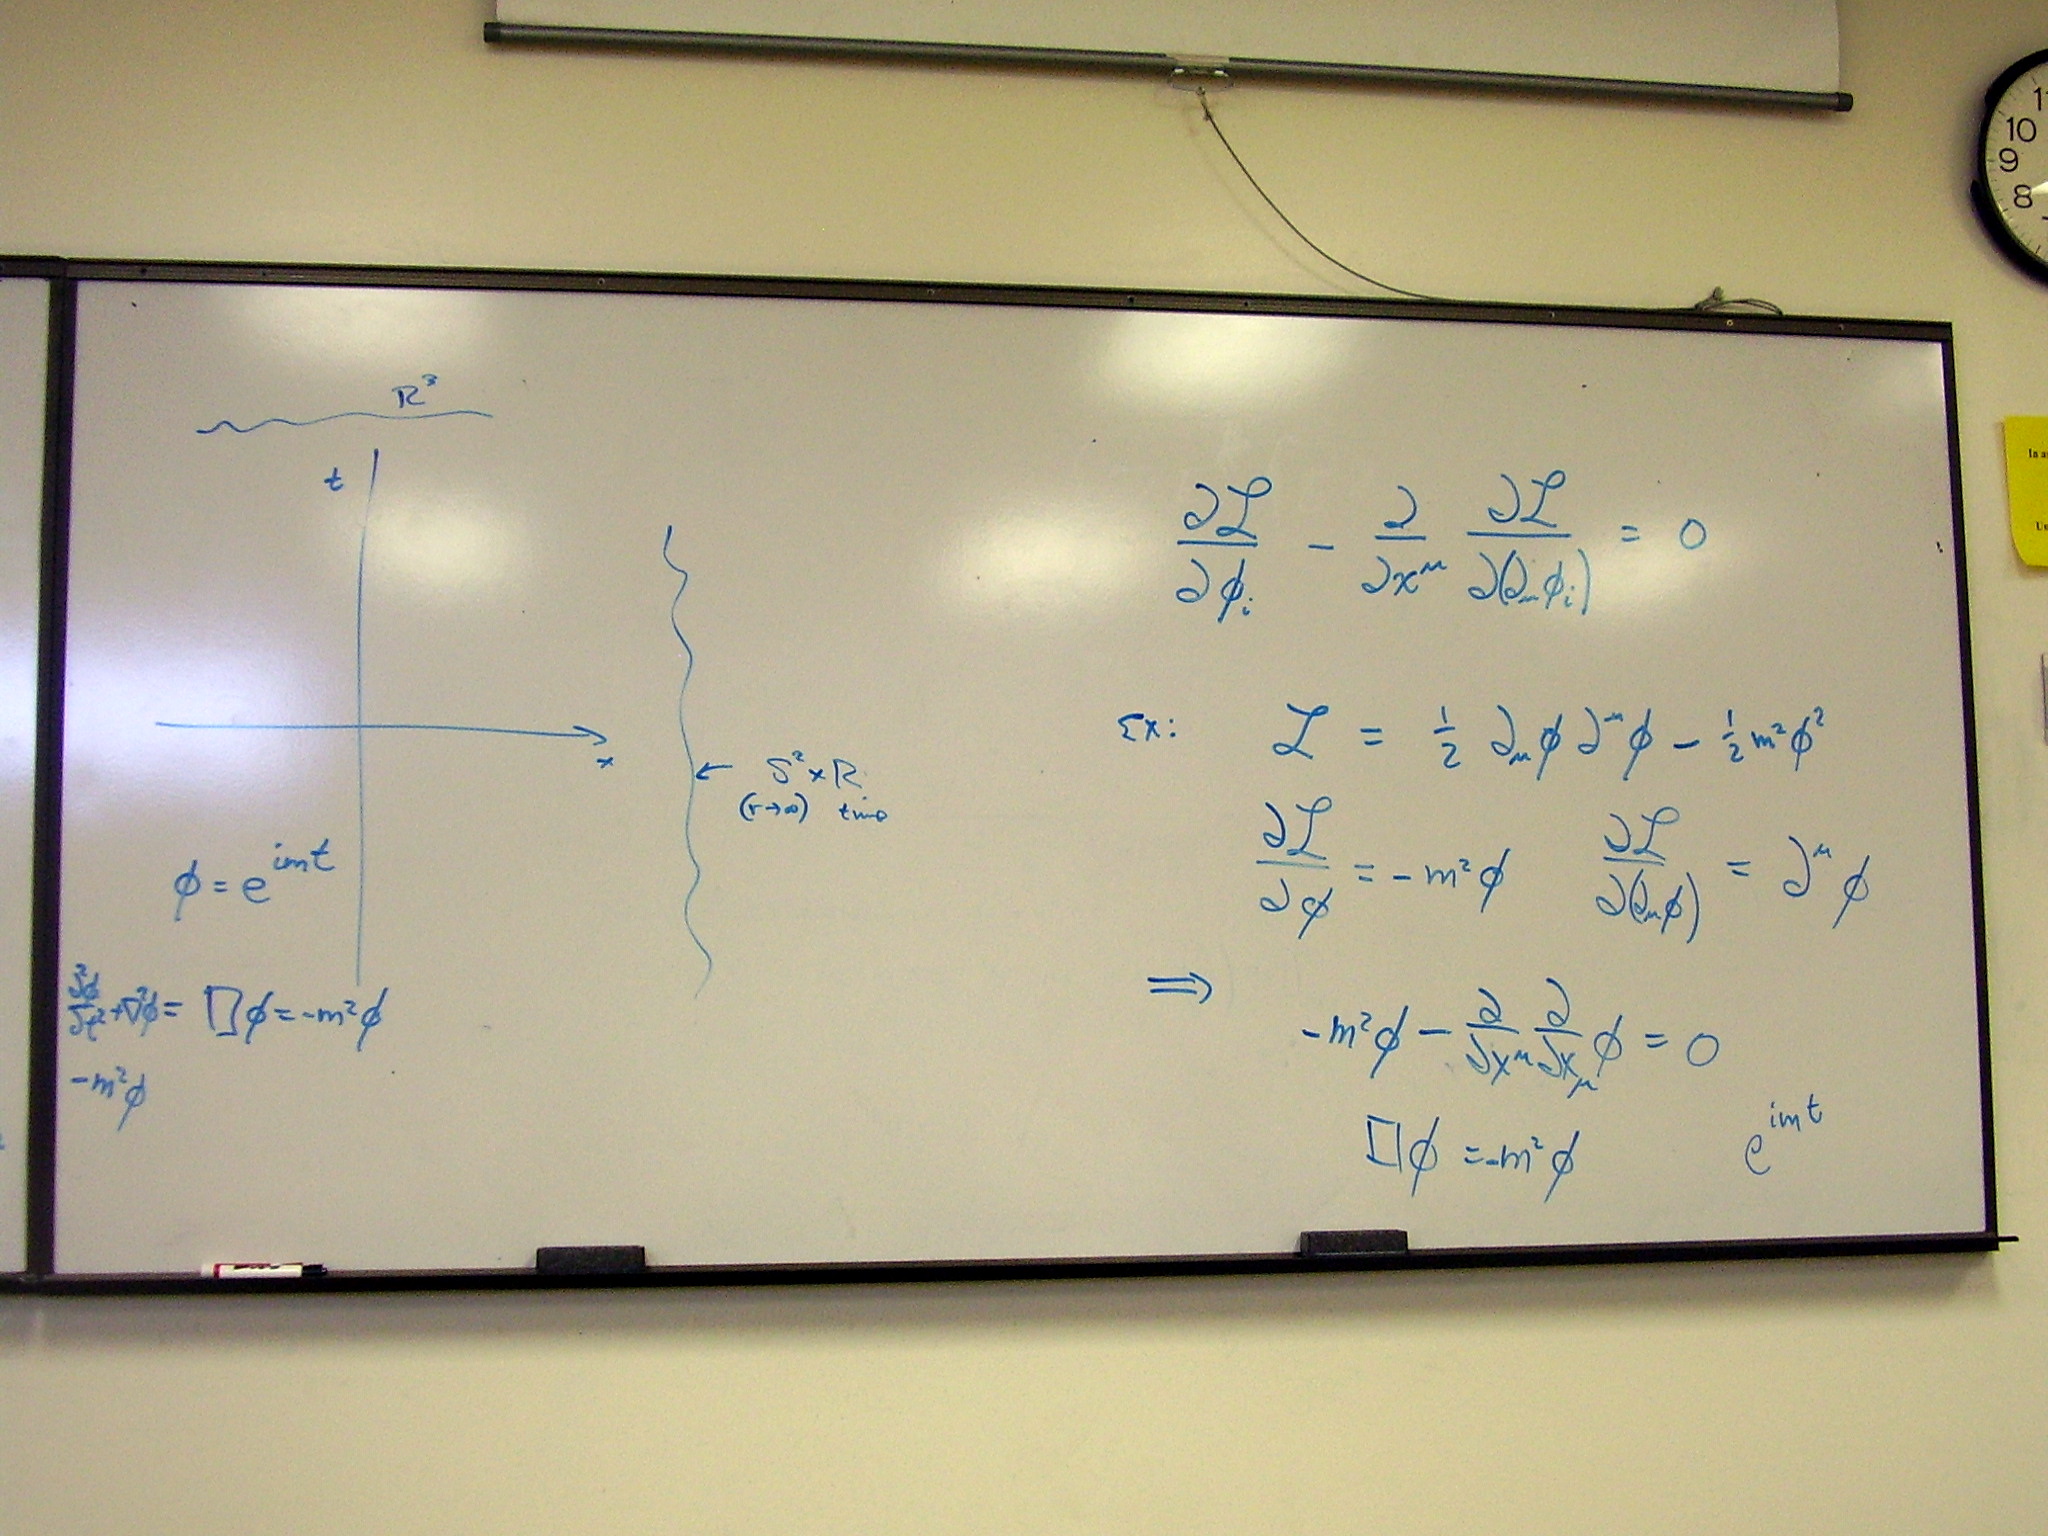 R³
t
x
← S² x R
(r→∞) time
ϕ = e^{imt}
∂²ϕ/∂t² + ∇²ϕ = □ϕ = -m²ϕ
-m²ϕ
∂ℒ/∂ϕᵢ - ∂/∂x^μ ∂ℒ/∂(∂_μϕᵢ) = 0
Ex: ℒ = 1/2 ∂_μϕ ∂^μϕ - 1/2 m²ϕ²
∂ℒ/∂ϕ = -m²ϕ ∂ℒ/∂(∂_μϕ) = ∂^μ ϕ
⇒
-m²ϕ - ∂/∂x^μ ∂/∂x_μ ϕ = 0
□ϕ = -m²ϕ e^{imt}
10
9
8